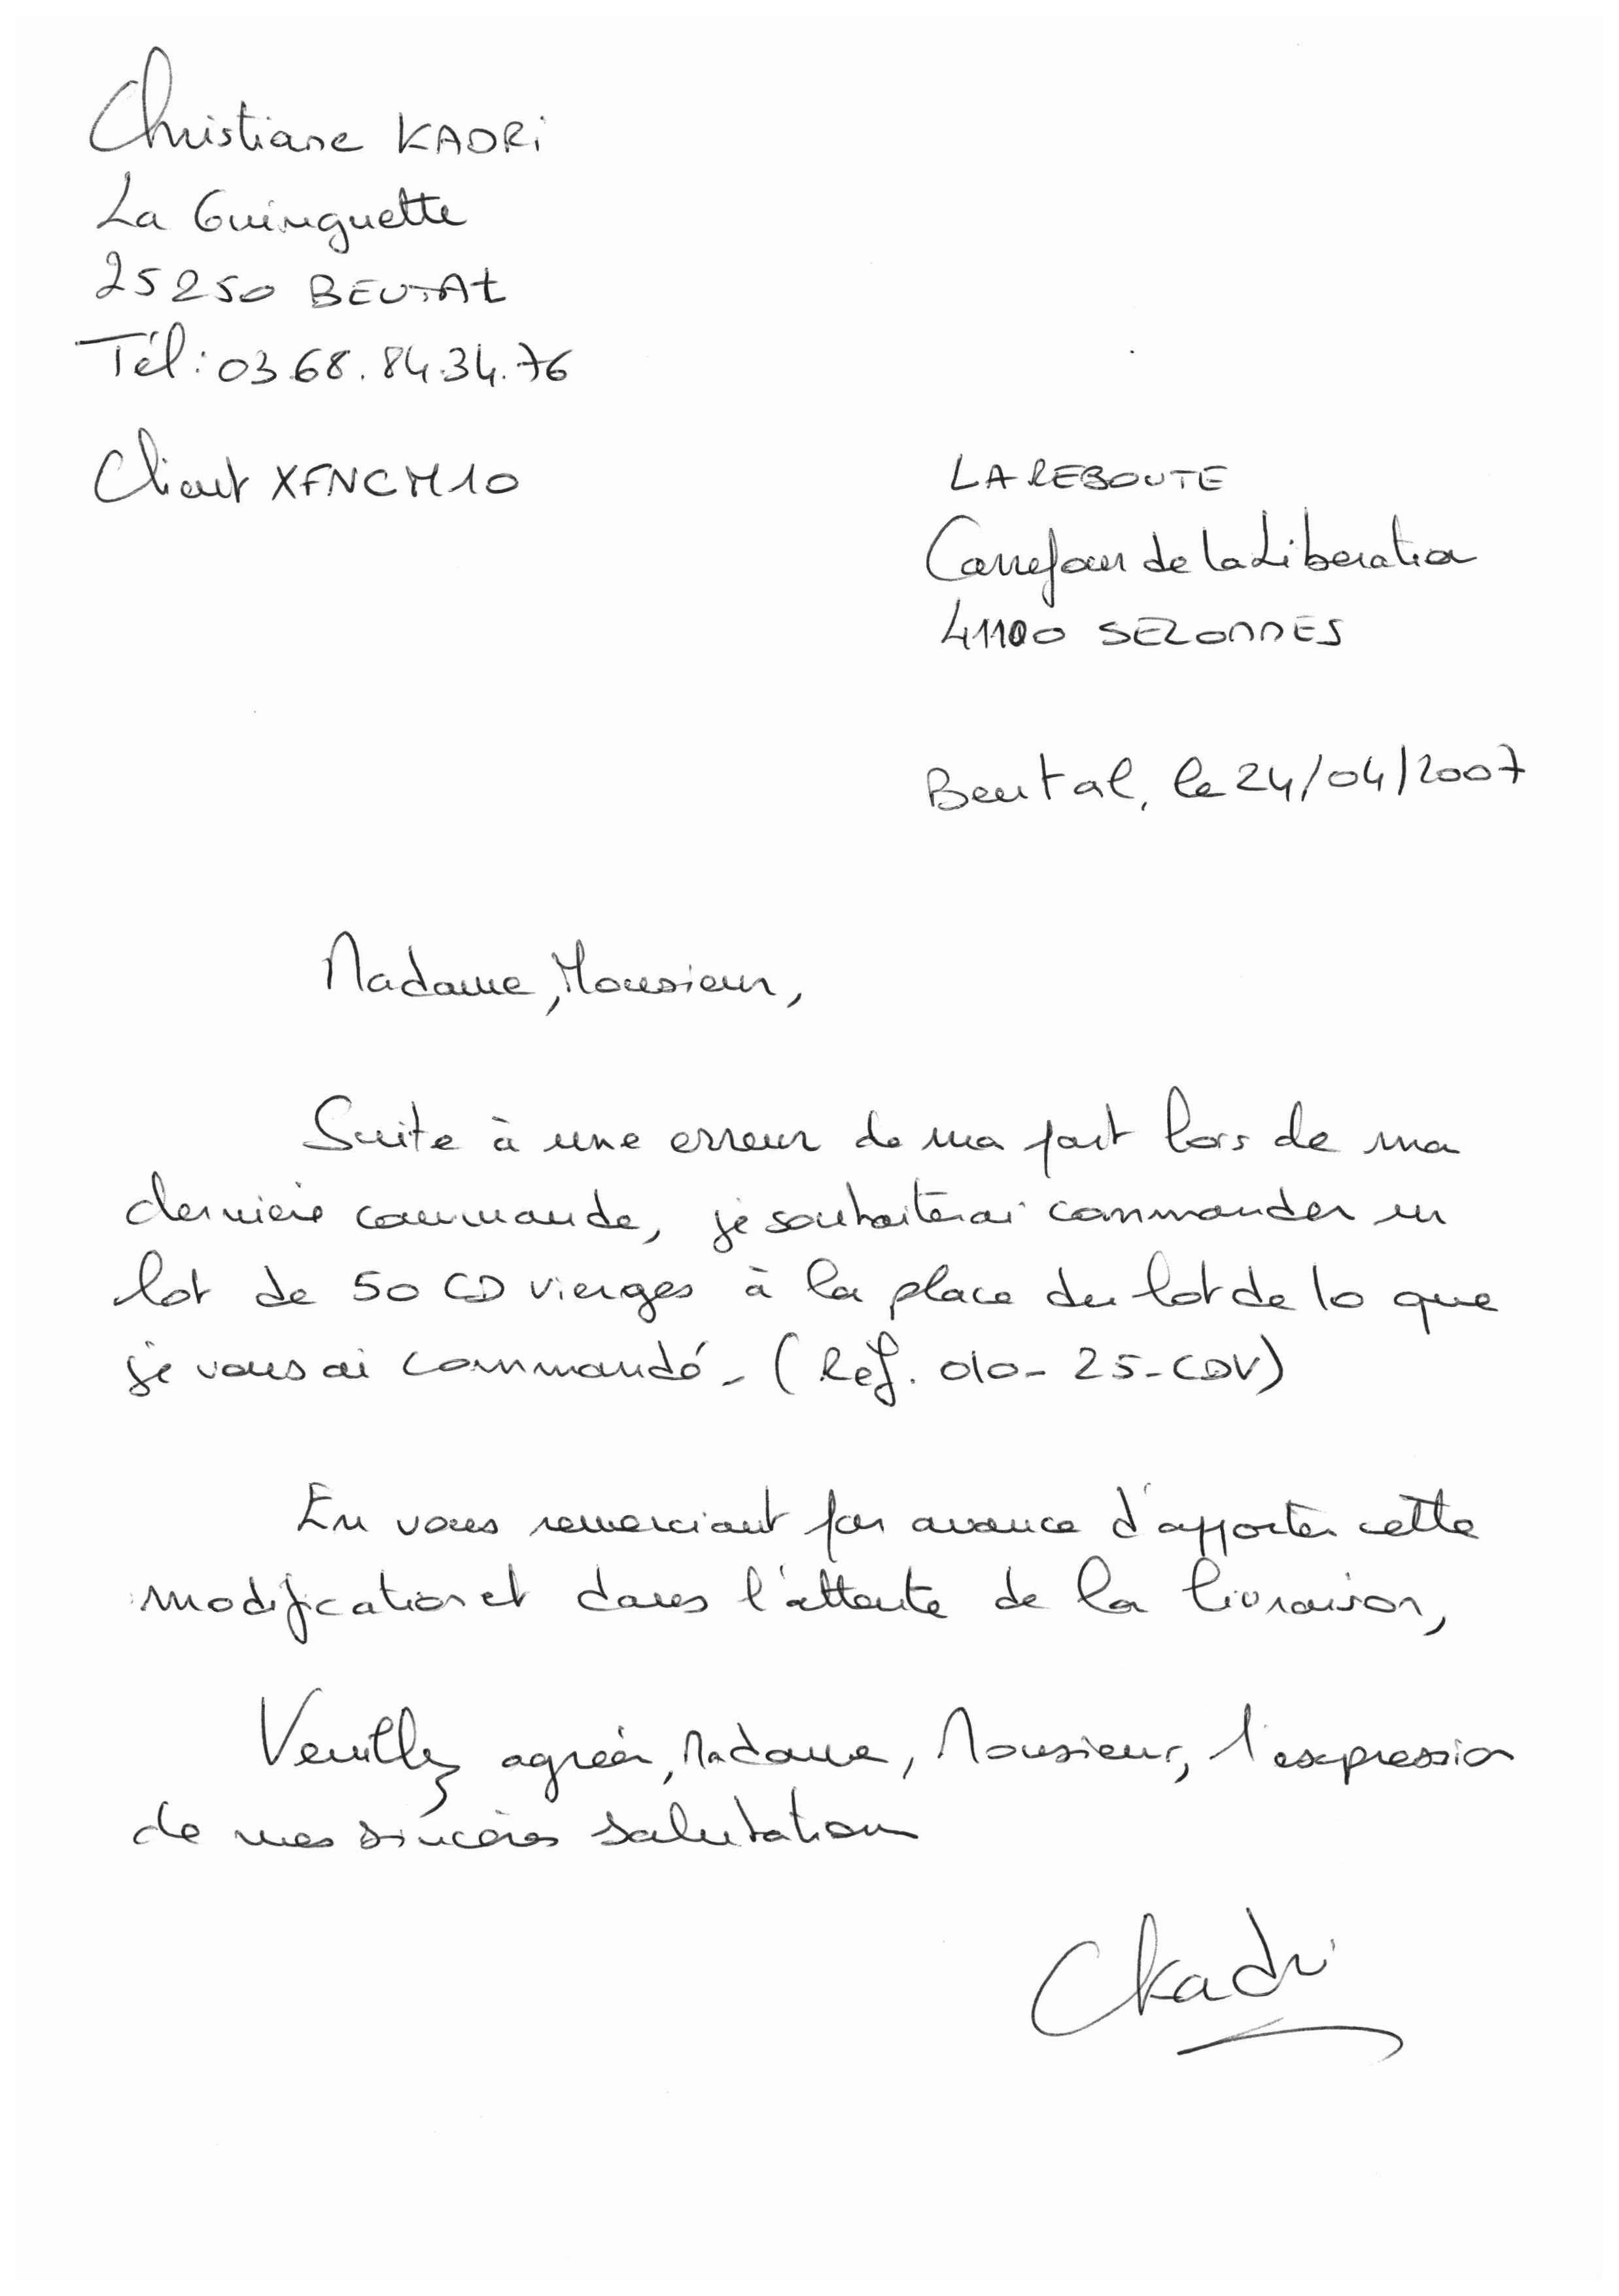 Christiane KADRI
La Guinguette
25250 BEUTAL
Tél : 03.68.84.34.76
Client XFNCM10
LA REBOUTE
Carrefour de la Liberation
41100 SEZONNES
Beutal, le 24/04/2007
Madame, Monsieur,
Suite à une erreur de ma part lors de ma
dernière commande, je souhaiterai commander un
lot de 50 CD vierges à la place du lot de 10 que
je vous ai commandé. (Réf. 010-25-CDV)
En vous remerciant par avance d'apporter cette
modification et dans l'attente de la livraison,
Veuillez agréer, Madame, Monsieur, l'expression
de mes sincères salutations
CKadri